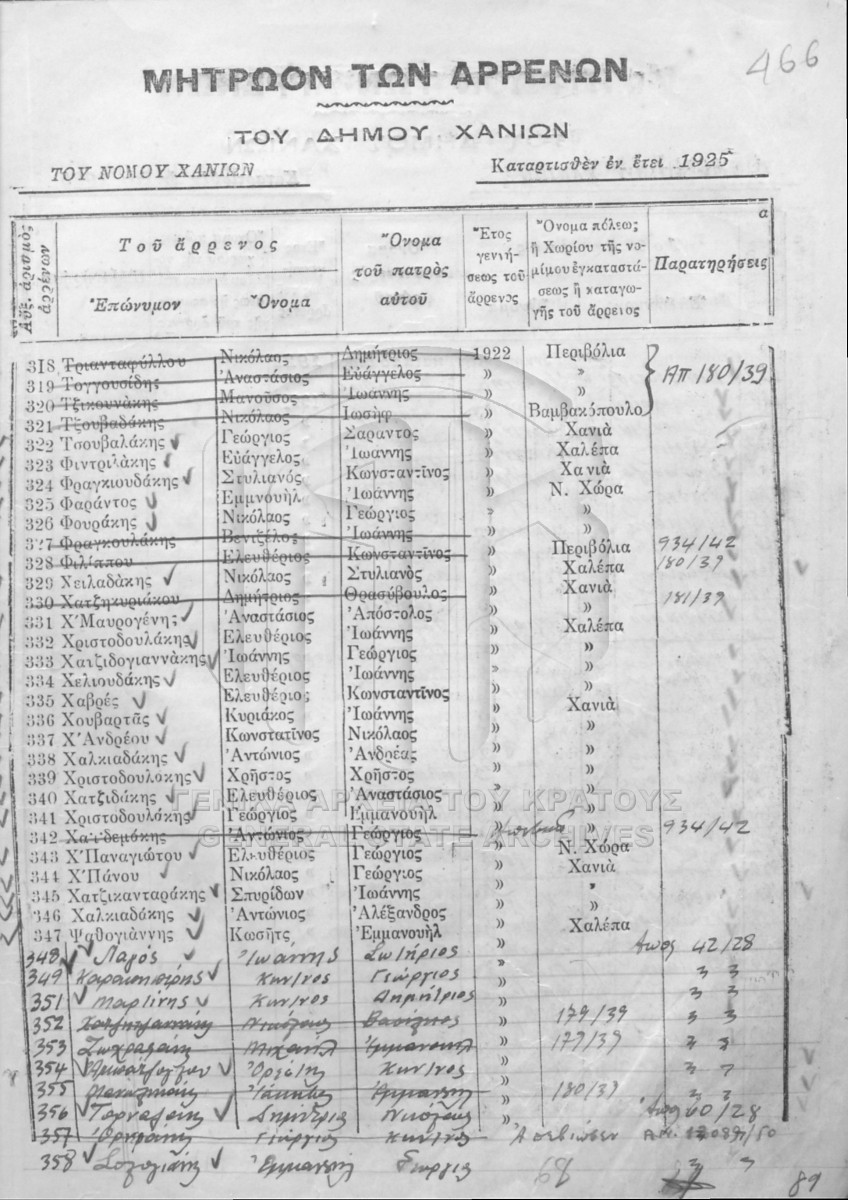 466
ΜΗΤΡΩΟΝ ΤΩΝ ΑΡΡΕΝΩΝ
ΤΟΥ ΔΗΜΟΥ ΧΑΝΙΩΝ
ΤΟΥ ΝΟΜΟΥ ΧΑΝΙΩΝ Καταρτισθὲν ἐν ἔτει 1925
Αὔξ. ἀρισμὸς ἀρρένων
Τοῦ ἄρρενος
Ἐπώνυμον Ὄνομα
Ὄνομα τοῦ πατρὸς αὐτοῦ
Ἔτος γεννήσεως τοῦ ἄρρενος
Ὄνομα πόλεως ἢ Χωρίου τῆς νομίμου ἐγκαταστάσεως ἢ καταγωγῆς τοῦ ἄρρενος
α
Παρατηρήσεις
318 Τριανταφύλλου Νικόλαος Δημήτριος 1922 Περιβόλια
319 Τογγουσίδης Ἀναστάσιος Εὐάγγελος » » ΑΠ 180/39
320 Τζικουνάκης Μανοῦσος Ἰωάννης » »
321 Τζουβαδάκης Νικόλαος Ἰωσὴφ » Βαμβακόπουλο
322 Τσουβαλάκης Γεώργιος Σαραντος » Χανιὰ
323 Φιντριλάκης Εὐάγγελος Ἰωαννης » Χαλέπα
324 Φραγκιουδάκης Στυλιανός Κωνσταντῖνος » Χανιὰ
325 Φαράντος Ἐμμνουὴλ Ἰωάννης » Ν. Χώρα
326 Φουράκης Νικόλαος Γεώργιος » »
327 Φραγκουλάκης Βενιζέλος Ἰωάννης » »
328 Φιλίππου Ἐλευθέριος Κωνσταντῖνος » Περιβόλια 934/42
329 Χειλαδὰκης Νικόλαος Στυλιανὸς » Χαλέπα 180/39
330 Χατζηκυριάκου Δημήτριος Θρασύβουλος » Χανιὰ
331 Χ'Μαυρογένης Ἀναστάσιος Ἀπόστολος » » 181/39
332 Χριστοδουλάκης Ἐλευθέριος Ἰωάννης » Χαλέπα
333 Χατζιδογιαννὰκης Ἰωάννης Γεώργιος » »
334 Χελιουδάκης Ἐλευθέριος Ἰωάννης » »
335 Χαβρές Ἐλευθέριος Κωνσταντῖνος » »
336 Χουβαρτᾶς Κυριάκος Ἰωάννης » Χανιὰ
337 Χ'Ἀνδρέου Κωνστατῖνος Νικόλαος » »
338 Χαλκιαδάκης Ἀντώνιος Ἀνδρέας » »
339 Χριστοδουλοκης Χρῆστος Χρῆστος » »
340 Χατζιδάκης Ἐλευθέριος Ἀναστάσιος » »
341 Χριστοδουλόκης Γεώργιος Εμμανουὴλ » »
342 Ἀντώνιος Γεώργιος » 934/42
343 Χ'Παναγιώτου Ἐλευθέριος Γεώργιος » Ν. Χώρα
344 Χ'Πάνου Νικόλαος Γεώργιος » Χανιὰ
345 Χατζικανταράκης Σπυρίδων Ἰωάννης » »
346 Χαλκιαδάκης Ἀντώνιος Ἀλέξανδρος » »
347 Ψαθογιάννης Κωσῆτς Ἐμμανουὴλ » Χαλέπα
348 Λαγός Ἰωάννης Σωτήριος » 42/28
349 Κων/νος Γεώργιος » » »
351 Μαρτίνης Κων/νος Δημήτριος » » »
352 Νικόλαος Βασίλειος » 179/39 » »
353 Μιχαήλ Ἐμμανουήλ » 179/39 » »
354 Κων/νος » » »
355 » 180/39 » »
356 Δημήτριος Νικόλαος »
357 Γεώργιος Κων/νος Ἀπεβίωσεν
358 Ἐμμανουήλ Γεώργιος
89
ΓΕΝΙΚΑ ΑΡΧΕΙΑ ΤΟΥ ΚΡΑΤΟΥΣ
GENERAL STATE ARCHIVES